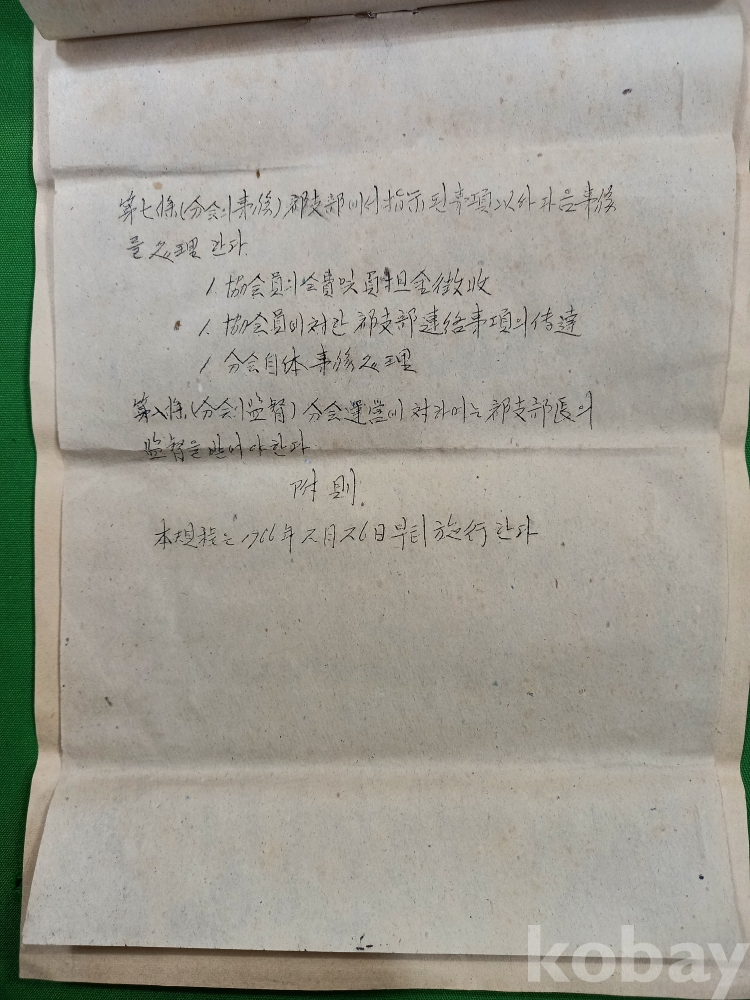 第七條(分会의事務) 郡支部에서指示된事項以外 다음事務
를処理한다.
1. 協会員의会費및負担金徵收
1. 協会員에対한 郡支部連絡事項의伝達
1. 分会自体事務処理
第八條(分会의監督) 分会運営에対하여는郡支部長의
監督을받어야한다
附則.
本規程는1966年2月26日부터施行한다
-1-
kobay